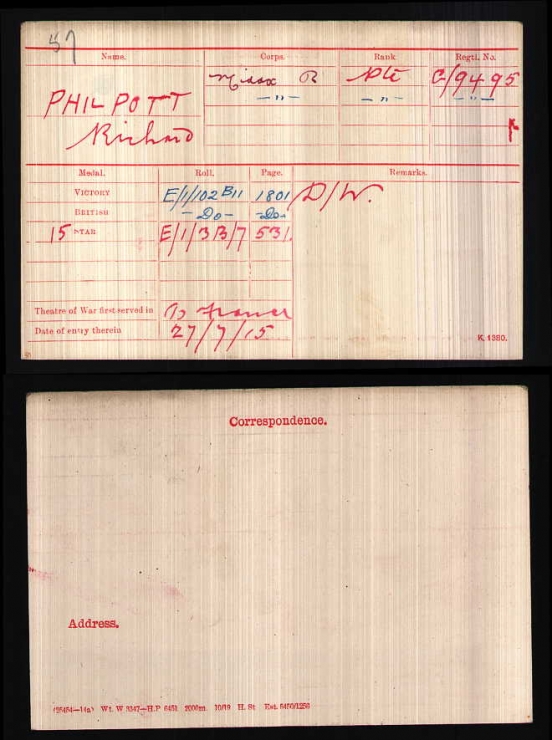 57
Name. Corps. Rank Regtl. No.
PHILPOTT Middx R Pte G/9495
Richard — " — — " — — " —
Medal. Roll. Page. Remarks.
VICTORY E/1/102 B11 1801 D/W.
BRITISH — Do — — Do —
15 STAR E/1/3B/7 531.
Theatre of War first served in (1) France
Date of entry therein 27/7/15
K. 1380.
Correspondence.
Address.
Wt. W 3347—H.P 2000m. 10/19 H. St